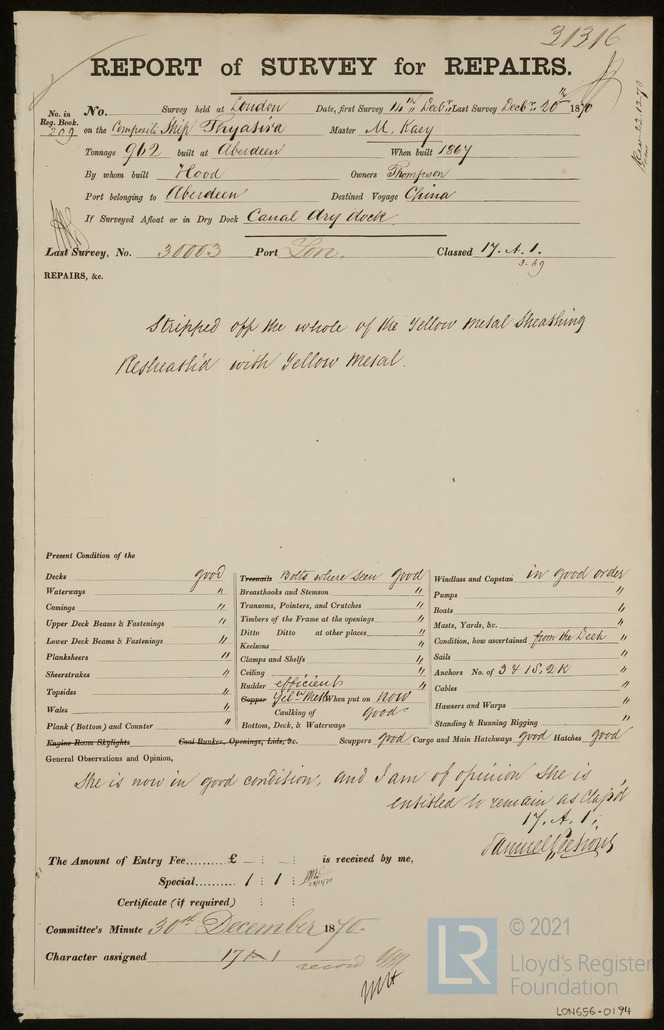 31316
REPORT of SURVEY for REPAIRS.
No. in Reg. Book. 209
No. Survey held at London Date, first Survey 14th Decbr. Last Survey Decbr. 20th 1870
on the Composite Ship Master M. Kaey
Tonnage 962 built at Aberdeen When built 1867
By whom built Hood Owners Thompson
Port belonging to Aberdeen Destined Voyage China
If Surveyed Afloat or in Dry Dock Canal dry dock.
Last Survey, No. 30003 Port Lon. Classed 17. A. 1.
3.69
REPAIRS, &c.
Stripped off the whole of the Yellow Metal Sheathing
Resheath'd with Yellow Metal.
Present Condition of the
Decks good
Waterways "
Comings "
Upper Deck Beams & Fastenings "
Lower Deck Beams & Fastenings "
Planksheers "
Sheerstrakes "
Topsides "
Wales "
Plank (Bottom) and Counter "
Engine Room Skylights
Treenails Bolts where seen good
Breasthooks and Stemson "
Transoms, Pointers, and Crutches "
Timbers of the Frame at the openings "
Ditto Ditto at other places "
Keelsons "
Clamps and Shelfs "
Ceiling "
Rudder efficient "
Copper Yel. Metl When put on now
Caulking of good
Bottom, Deck, & Waterways
Coal Bunker, Openings, Lids, &c. Scuppers good Cargo and Main Hatchways good Hatches good
Windlass and Capstan in good order
Pumps "
Boats "
Masts, Yards, &c. "
Condition, how ascertained from the Deck "
Sails "
Anchors No. of 3 & 1 S. 2 K "
Cables "
Hawsers and Warps "
Standing & Running Rigging "
General Observations and Opinion,
She is now in good condition, and I am of opinion she is
entitled to remain as Class'd
17. A. 1.
The Amount of Entry Fee......... £ - : - : is received by me,
Special......... 1 : 1 :
Certificate (if required) : :
Committee's Minute 30th December 1870.
Character assigned 17 A 1
record
LR
© 2021
Lloyd's Register
Foundation
LON656-0194